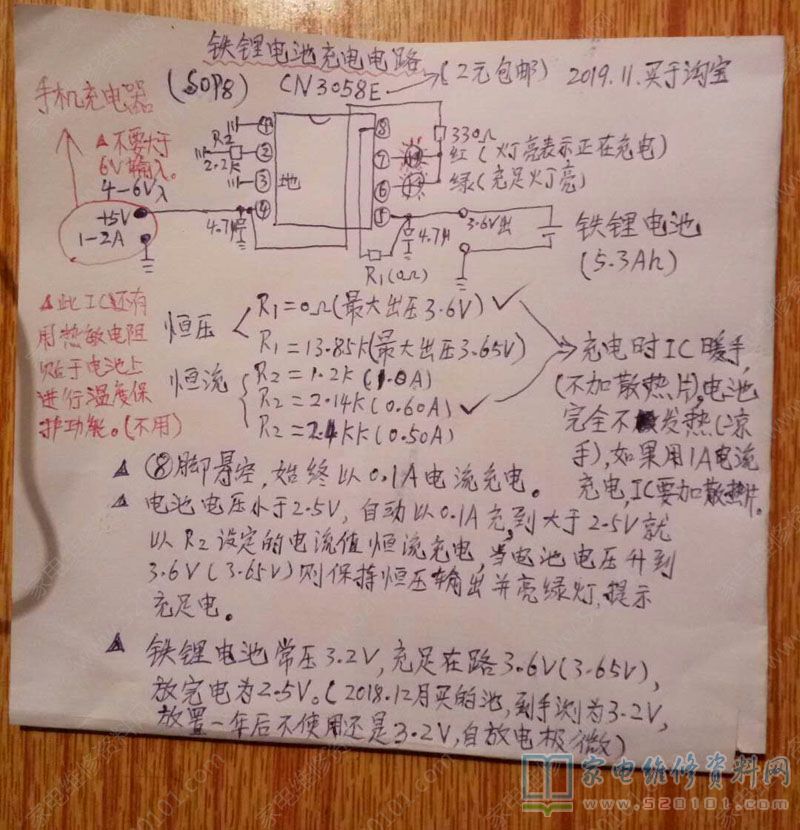 铁锂电池充电电路
(SOP8) CN3058E (2元包邮) 2019.11.买于淘宝
手机充电器
▲不要大于
6V输入。
4-6V入
+5V
1-2A
①
R2
2.2K ②
③ 地
④
4.7μ
⑧
⑦
⑥
⑤
330Ω
红(灯亮表示正在充电)
绿(充足灯亮)
4.7μ
3.6V出
R1(0Ω)
铁锂电池
(5.3Ah)
▲此IC还有
用热敏电阻
贴于电池上
进行温度保
护功能。(不用)
恒压
R1=0Ω(最大出压3.6V)
R1=13.85K(最大出压3.65V)
恒流
R2=1.2K(1.0A)
R2=2.14K(0.60A)
R2=2.4KK(0.50A)
充电时IC暖手,
(不加散热片),电池
完全不发热(凉
手),如果用1A电流
充电,IC要加散热片。
▲ ⑧脚悬空,始终以0.1A电流充电。
▲ 电池电压小于2.5V,自动以0.1A充,到大于2.5V就
以R2设定的电流值恒流充电,当电池电压升到
3.6V(3.65V)则保持恒压输出并亮绿灯,提示
充足电。
▲ 铁锂电池常压3.2V,充足在路3.6V(3.65V),
放完电为2.5V。(2018.12月买的池,到手测为3.2V,
放置一年后不使用还是3.2V,自放电极微)
家电维修资料网
www.520101.com